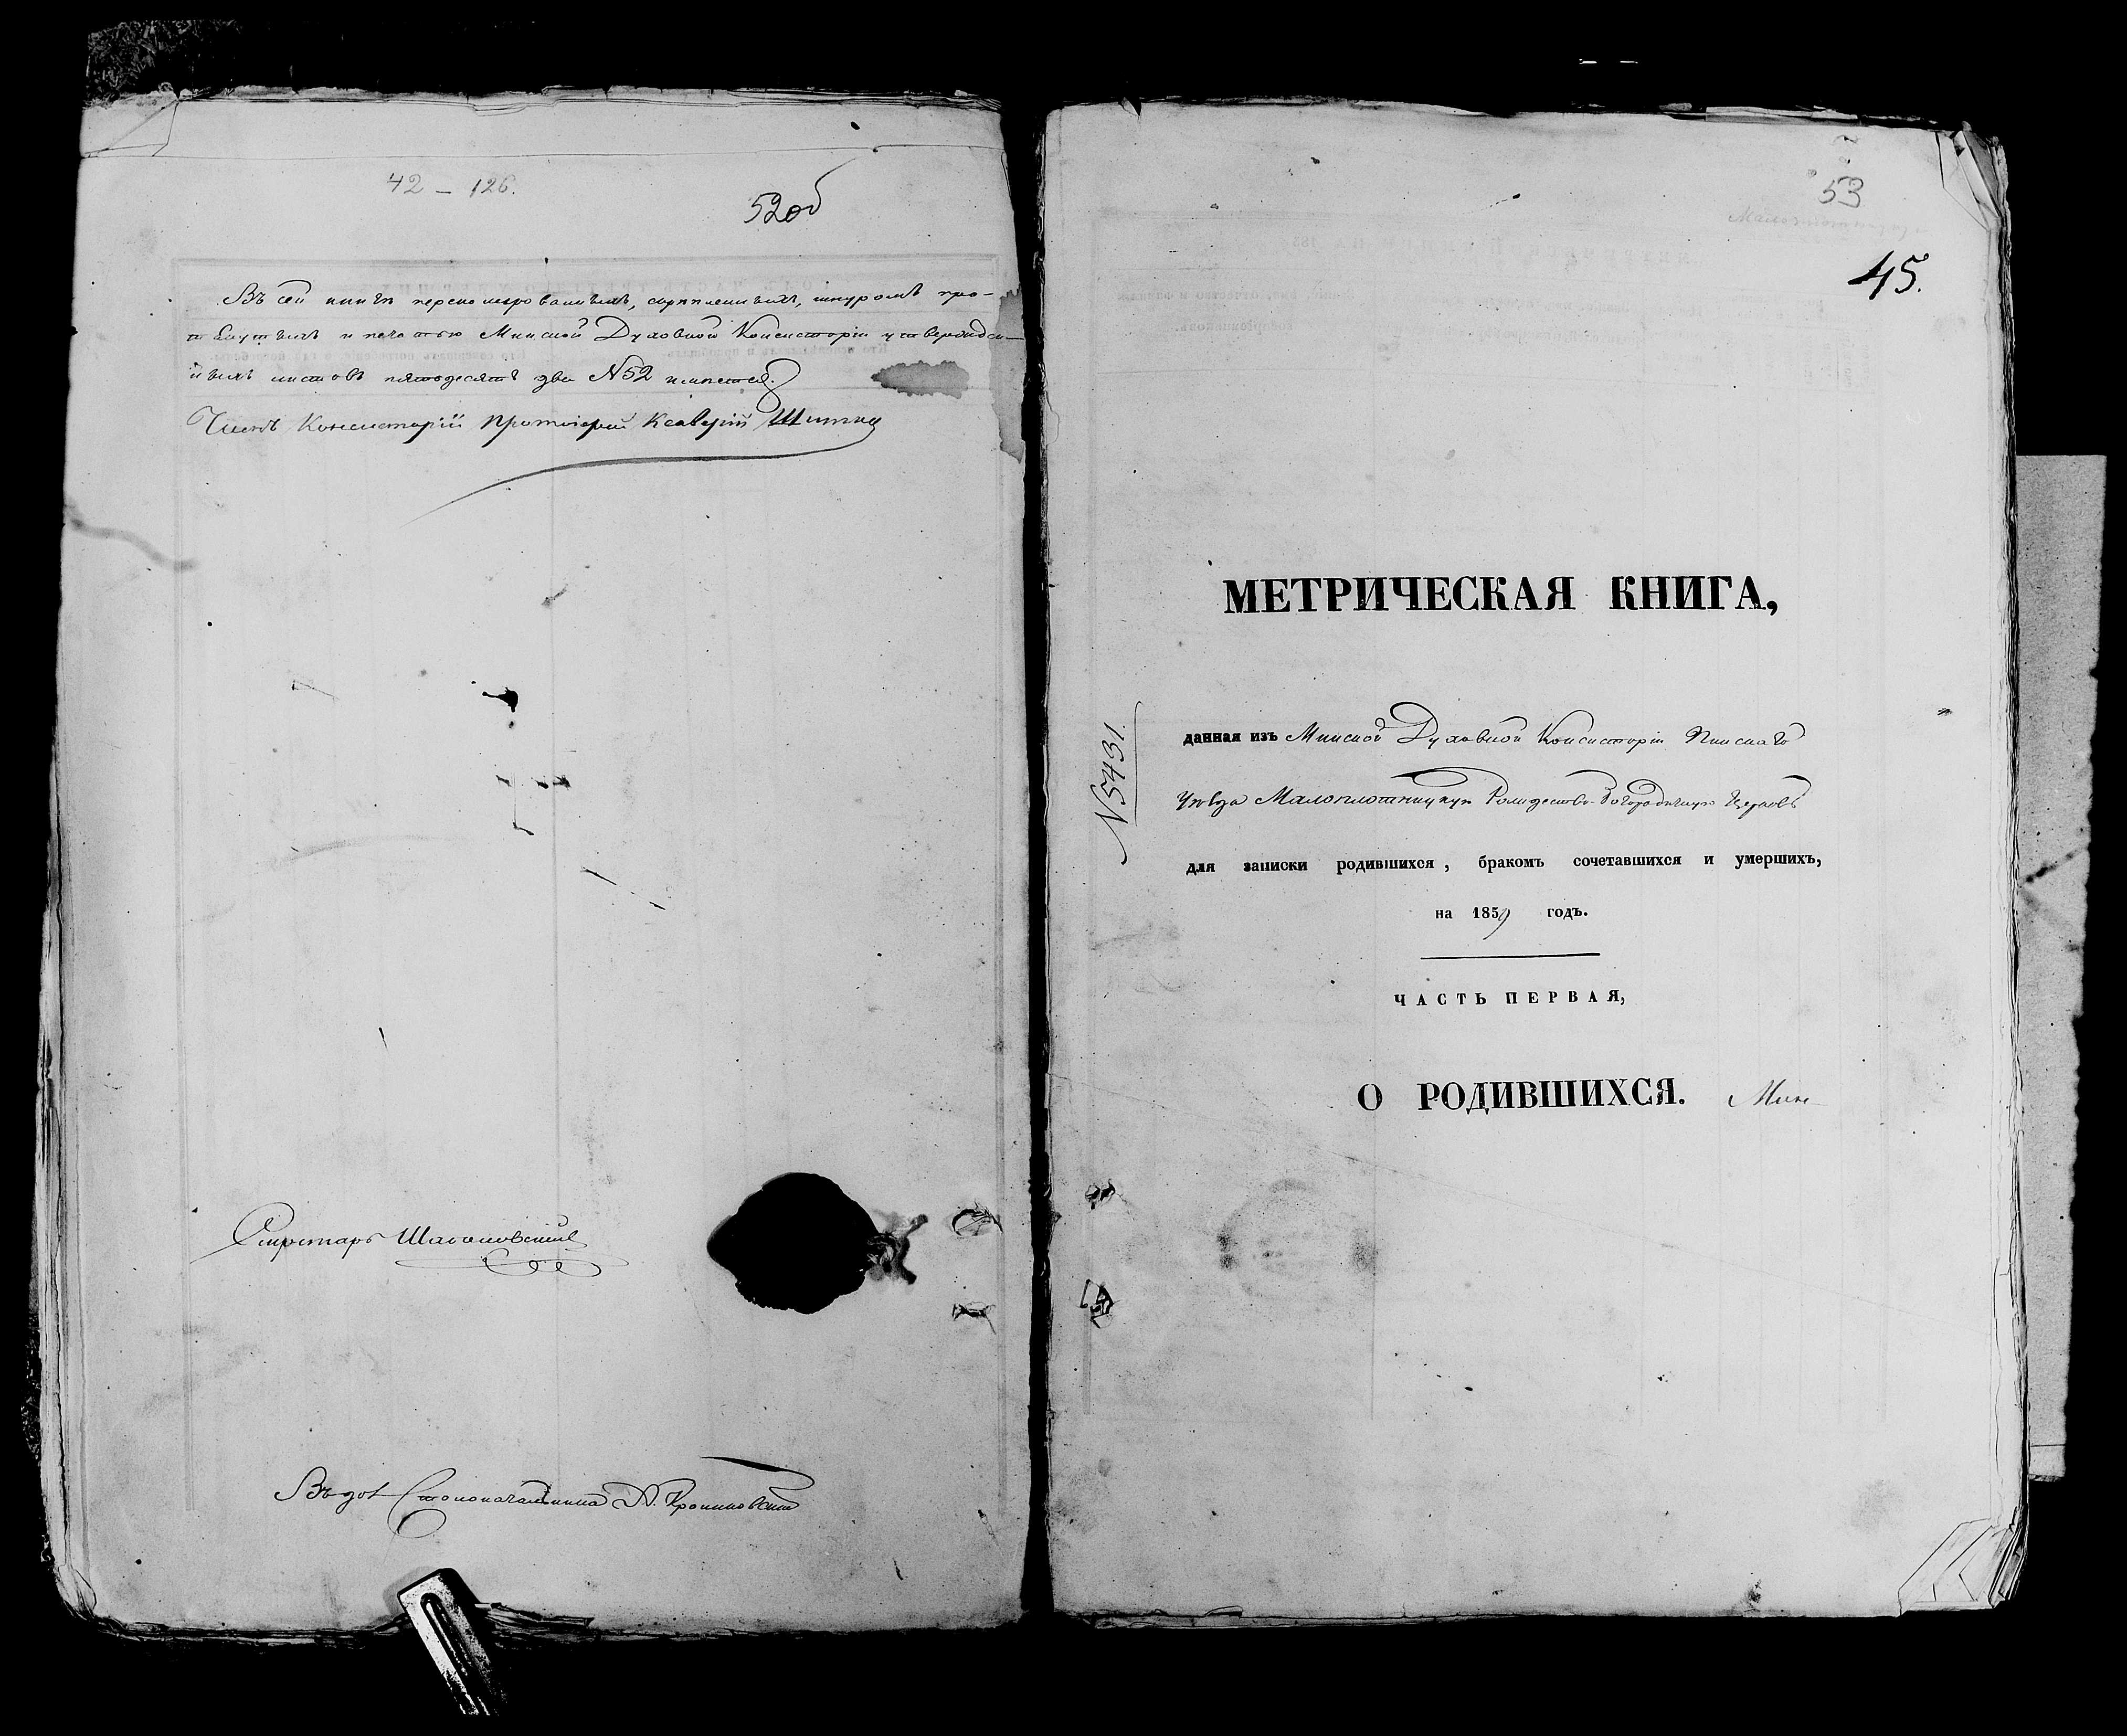 42 – 126.
52об
Въ сей книгѣ перенумерованныхъ, скрѣпленныхъ, шнуромъ про-
тянутыхъ и печатью Минской Духовной Консисторіи утвержден-
ныхъ листовъ пятьдесятъ два N 52 имѣется.
Членъ Консисторіи Протоіерей Ксаверій
Секретарь
Столоначальника
53
45.
МЕТРИЧЕСКАЯ КНИГА,
N 5431.
данная изъ Минской Духовной Консисторіи Пинскаго
Уѣзда Малоплотницкую Рождество-Богородичную Церковь
для записки родившихся, бракомъ сочетавшихся и умершихъ,
на 1859 годъ.
ЧАСТЬ ПЕРВАЯ,
О РОДИВШИХСЯ. Мин-